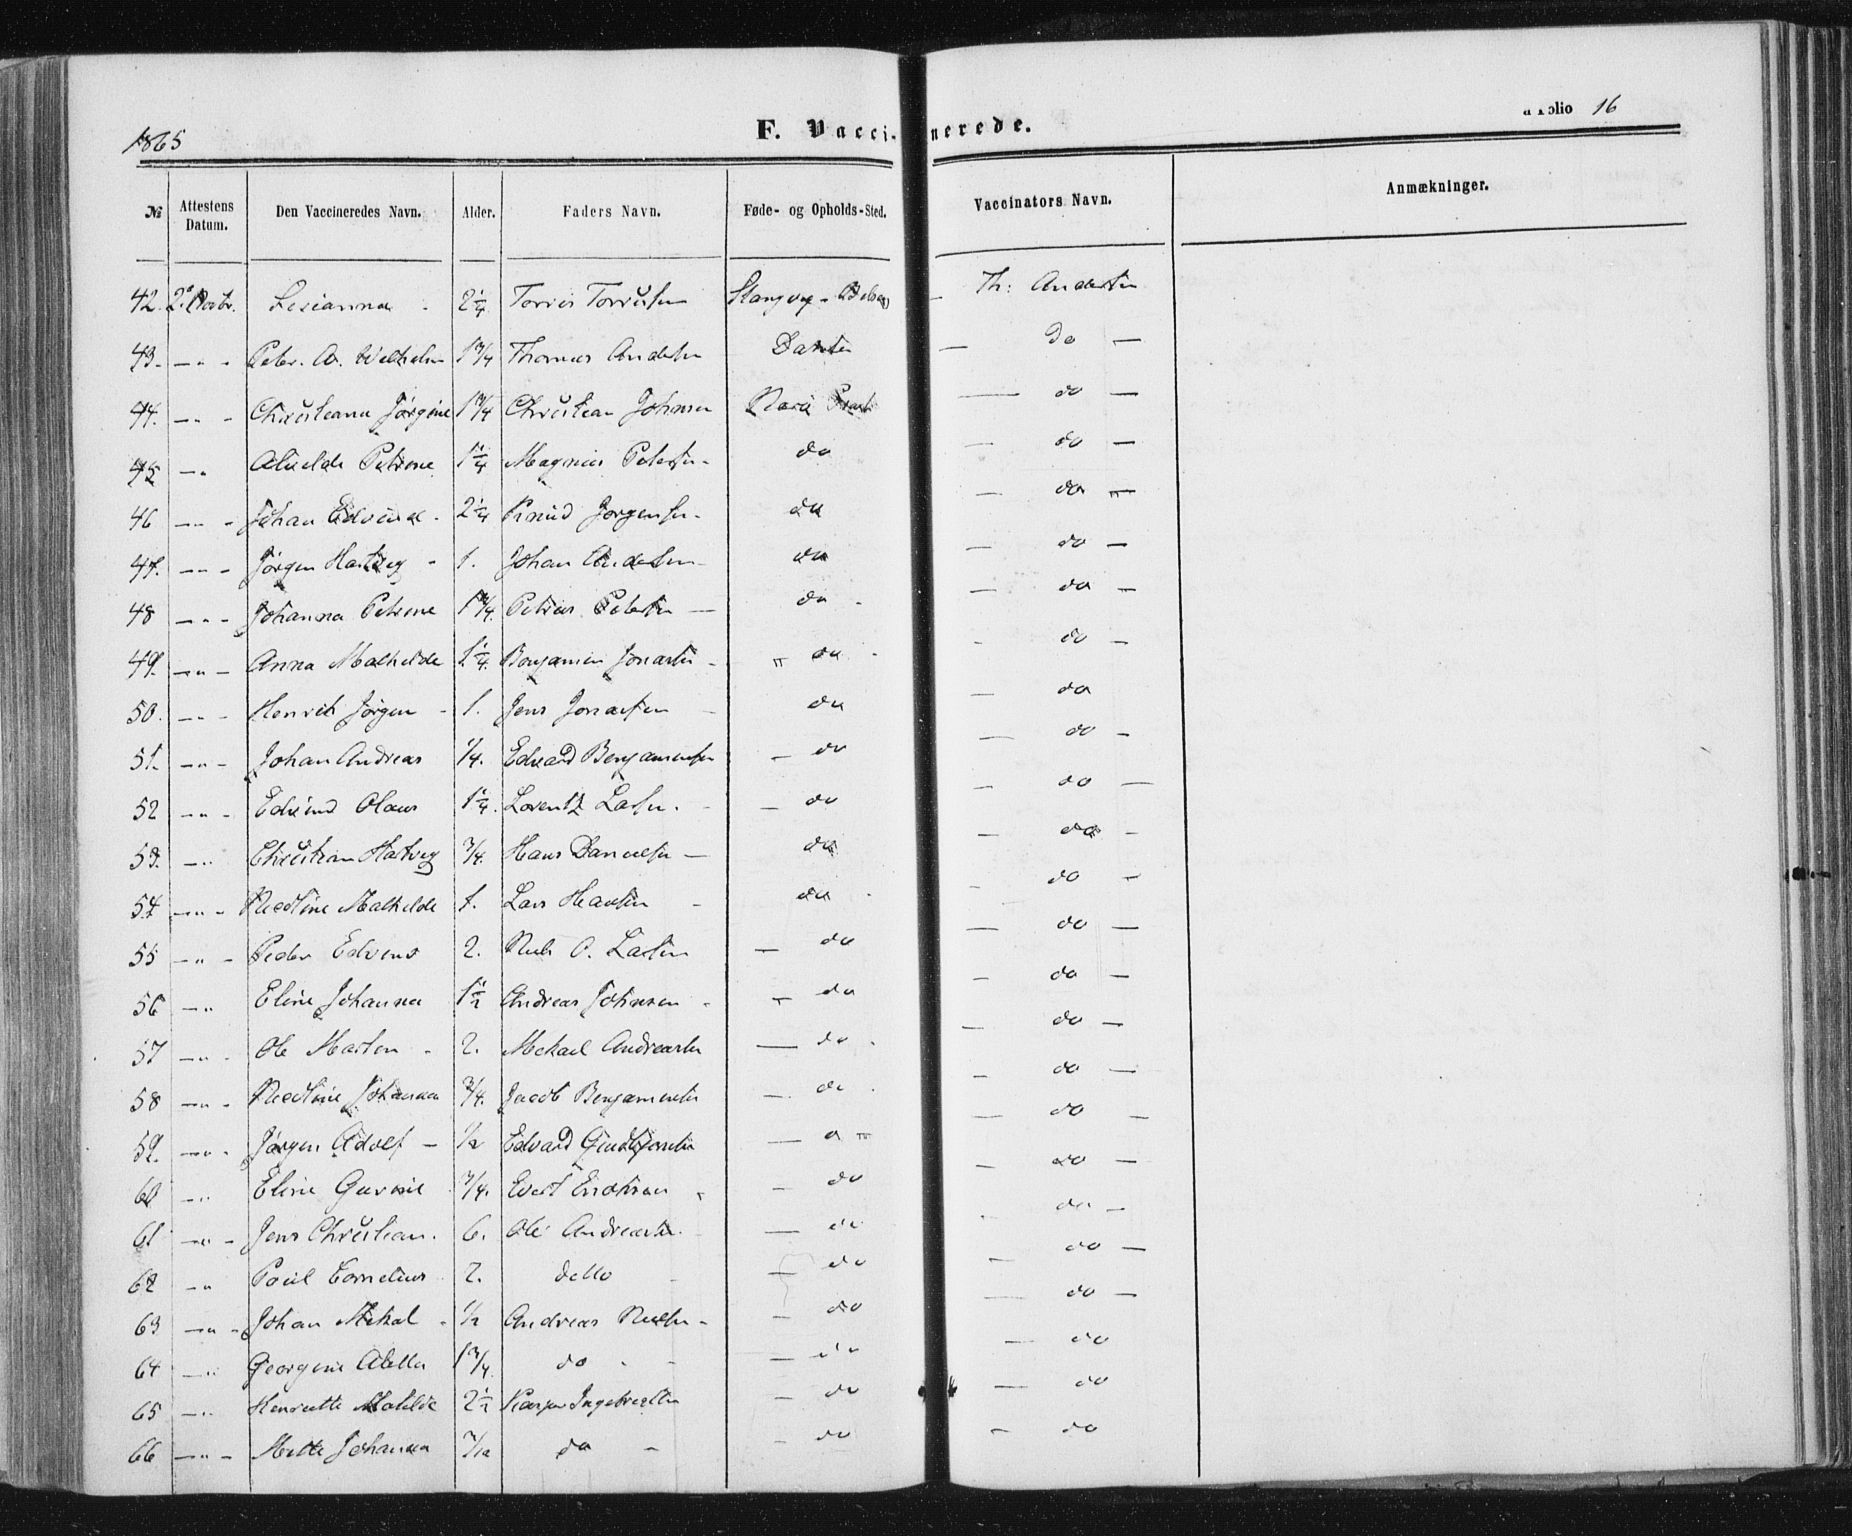 1865
F. Vaccinerede.
Folio 16
№ Attestens Datum. Den Vaccineredes Navn. Alder. Faders Navn. Føde- og Opholds-Sted. Vaccinators Navn. Anmækninger.
42. 2 Lesianna - 2 1/4 Torris Torrisen - Th: Andersen
43. — " - Peter. A. Wilhelm 1 3/4 Thomas Andersen — Do —
44. — " - Christiana Jørgine 1 3/4 Christian Johnsen — do —
45 — " Petrine 1 1/4 Magnus Petersen - do — do —
46 — " - Johan Edvind - 2 1/4 Knud Jørgensen - do — do —
47. — " - Jørgen Hartvig - 1. Johan Andersen do — do —
48 — " - Johanna Petrine 1 3/4 Petrus Petersen — do - — do —
49. — " - Anna Mathilde 1 1/4 Benjamin Jonassen - " do - - do —
50. — " - Henrik Jørgen - 1. Jens Jonassen — do — do
51. — " - Johan Andreas 1/4. Edvard Benjaminsen — do — do -
52 — " - Edvind Olaus 1 1/4. Lorentz Larsen. - — do — do —
53. — " Christian Hartvig 3/4. Hans Danielsen — do — do -
54 — " - Nicoline Mathilde 1. Lars Hansen - do - - do —
55 — " - Peder Edvens 2. Nils O. Larsen — do — do —
56 — " Eline Johanna 1 1/2 Andreas Johnsen - — do — do —
57 — " - Ole Marten - 2. Mekael Andreasen — do - — do —
58 — " - Nicoline Johanna 3/4. Jacob Benjaminsen — do - — do —
59. — " - Jørgen Adolf — 1/2 Edvard — — do —
60 — " Eline 3/4. Evert — do — do —
61 — " - Jens Christian. 6. Ole Andreasen. — do - do —
62 — " Paul Cornelius 2. detto - — do — do —
63 — " - Johan Mikal - 1/2 Andreas Nilsen - — do — do —
64 — " Georgine 1 3/4 do - - — do — do
65 — " Henriette Matilde 2 1/2 Ingebrigtsen — do — do
66 — " - Mette Johanna do - — do - do